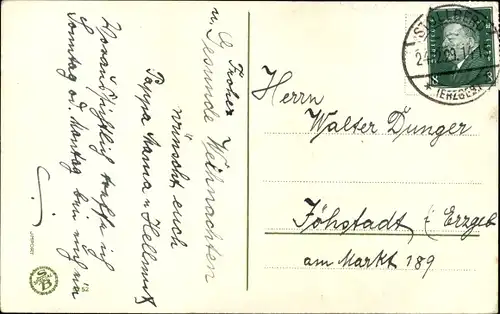 Froher
u. Gesunde Weihnachten
wünscht euch
Pappa Mama u. Hellmut
Voraussichtlich treffe ich
Sonntag od. Montag bei
Herrn
Walter Dünger
Jöhstadt i Erzgeb
am Markt 189
STOLLBERG
(ERZGEB.)
SB